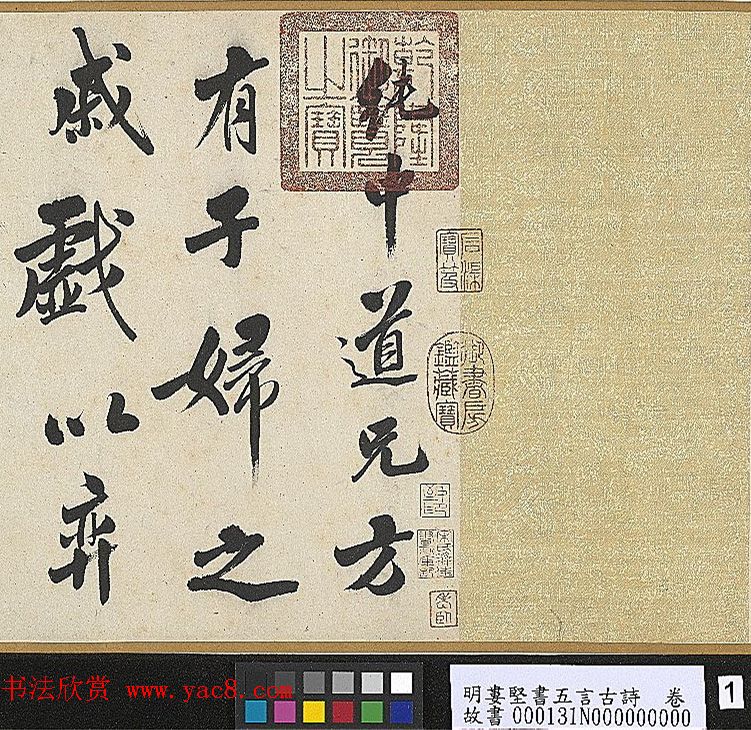 統中道兄方
有子婦之
戚戲以弈
乾隆御覽之寶
石渠寶笈
御書房鑑藏寶
书法欣赏 www.yac8.com
明婁堅書五言古詩 卷
故書 000131N000000000
1